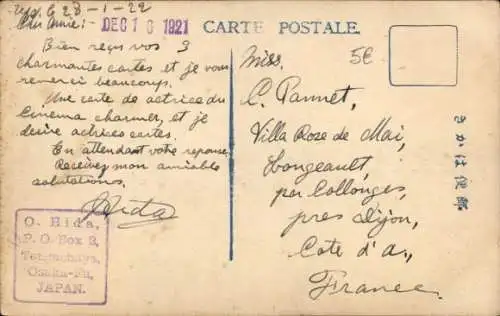 28-1-22
Amie:-
DEC 16 1921
CARTE POSTALE.
5€
Bien reçus vos 3
charmantes cartes et je vous
remerci beaucoups.
Une carte de actrice du
Cinema charmer, et je
desire actrices cartes.
En attendant votre reponse
Recevez mon amiable
salutations,
Hida
O. Hida,
P. O. Box 2,
Osaka-Fu,
JAPAN.
Miss.
C. Pannet,
Villa Rose de Mai,
Longeault,
par Collonges,
près Dijon,
Cote d'or,
France
きかは便郵